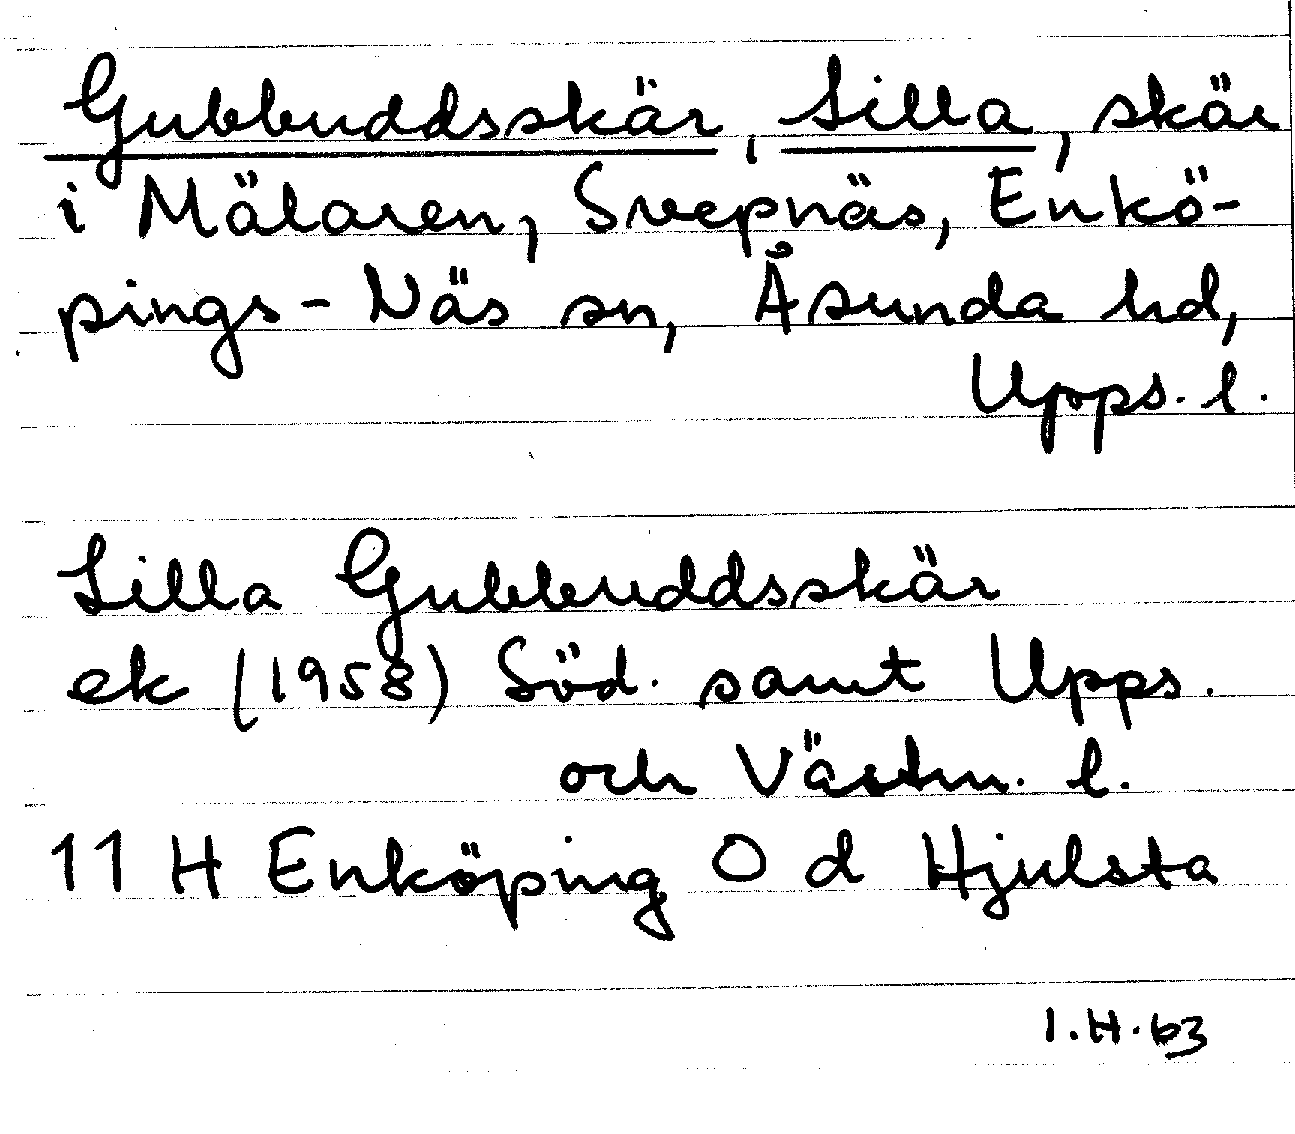 Gubbuddsskär, Lilla, skär
i Mälaren, Svepnäs, Enkö-
pings-Näs sn, Åsunda hd,
Upps. l.
Lilla Gubbuddsskär
ek (1958) Söd. samt Upps.
och Västm. l.
11 H Enköping O d Hjulsta
I.H.63